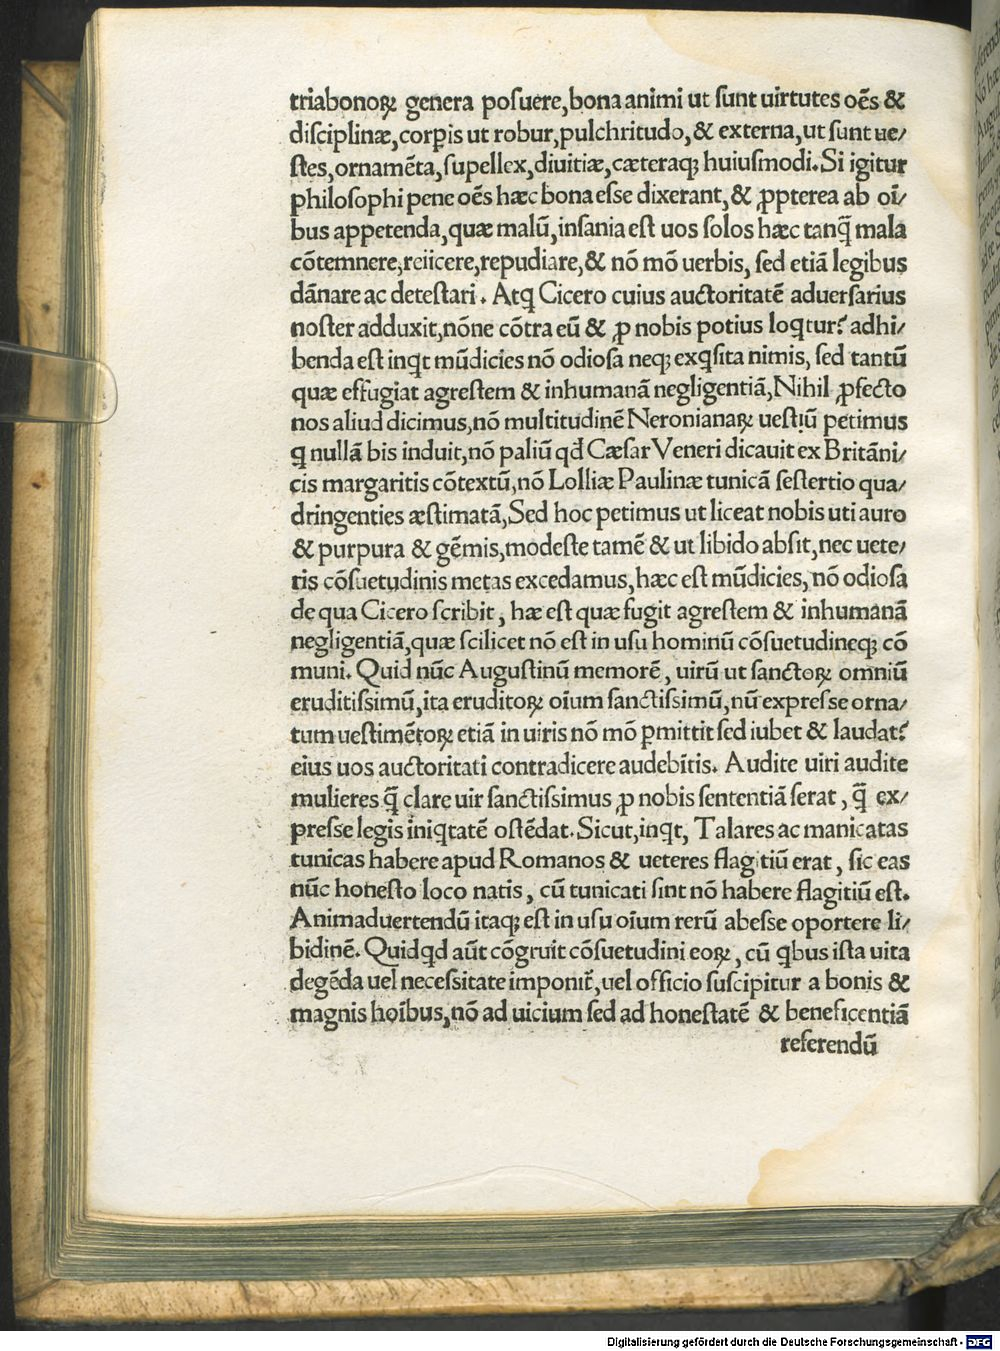 triabonoꝝ genera posuere,bona animi ut sunt uirtutes oēs &
disciplinæ,corꝑis ut robur,pulchritudo,& externa,ut sunt ue/
stes,ornamēta,supellex,diuitiæ,cæteraq; huiusmodi.Si igitur
philosophi pene oēs hæc bona esse dixerant,& ꝓpterea ab oī/
bus appetenda,quæ malū,insania est uos solos hæc tanq̄ mala
cōtemnere,reiicere,repudiare,& nō mō uerbis, sed etiā legibus
dānare ac detestari. Atq; Cicero cuius auctoritatē aduersarius
noster adduxit,nōne cōtra eū & ꝓ nobis potius loqtur? adhi/
benda est inqt mūdicies nō odiosa neq; exqsita nimis, sed tantū
quæ effugiat agrestem & inhumanā negligentiā,Nihil ꝓfecto
nos aliud dicimus,nō multitudinē Neronianaꝝ uestiū petimus
q nullā bis induit,nō paliū qd̄ Cæsar Veneri dicauit ex Britāni/
cis margaritis cōtextū,nō Lolliæ Paulinæ tunicā sestertio qua/
dringenties æstimatā,Sed hoc petimus ut liceat nobis uti auro
& purpura & gēmis,modeste tamē & ut libido absit,nec uete/
ris cōsuetudinis metas excedamus,hæc est mūdicies,nō odiosa
de qua Cicero scribit, hæ est quæ fugit agrestem & inhumanā
negligentiā,quæ scilicet nō est in usu hominū cōsuetudineq; cō
muni. Quid nūc Augustinū memorē, uirū ut sanctoꝝ omniū
eruditissimū,ita eruditoꝝ oīum sanctissimū,nū expresse orna/
tum uestimētoꝝ etiā in uiris nō mō ꝑmittit sed iubet & laudat?
eius uos auctoritati contradicere audebītis. Audite uiri audite
mulieres q̄ clare uir sanctissimus ꝓ nobis sententiā ferat, q̄ ex/
presse legis iniqtatē ostēdat.Sicut,inqt, Talares ac manicatas
tunicas habere apud Romanos & ueteres flagitiū erat, sic eas
nūc honesto loco natis, cū tunicati sint nō habere flagitiū est.
Animaduertendū itaq; est in usu oīum rerū abesse oportere li/
bidinē. Quidqd aūt cōgruit cōsuetudini eoꝝ, cū qbus ista uita
degēda uel necessitate imponit᷑,uel officio suscipitur a bonis &
magnis hoībus,nō ad uicium sed ad honestatē & beneficentiā
referendū
Digitalisierung gefördert durch die Deutsche Forschungsgemeinschaft - DFG